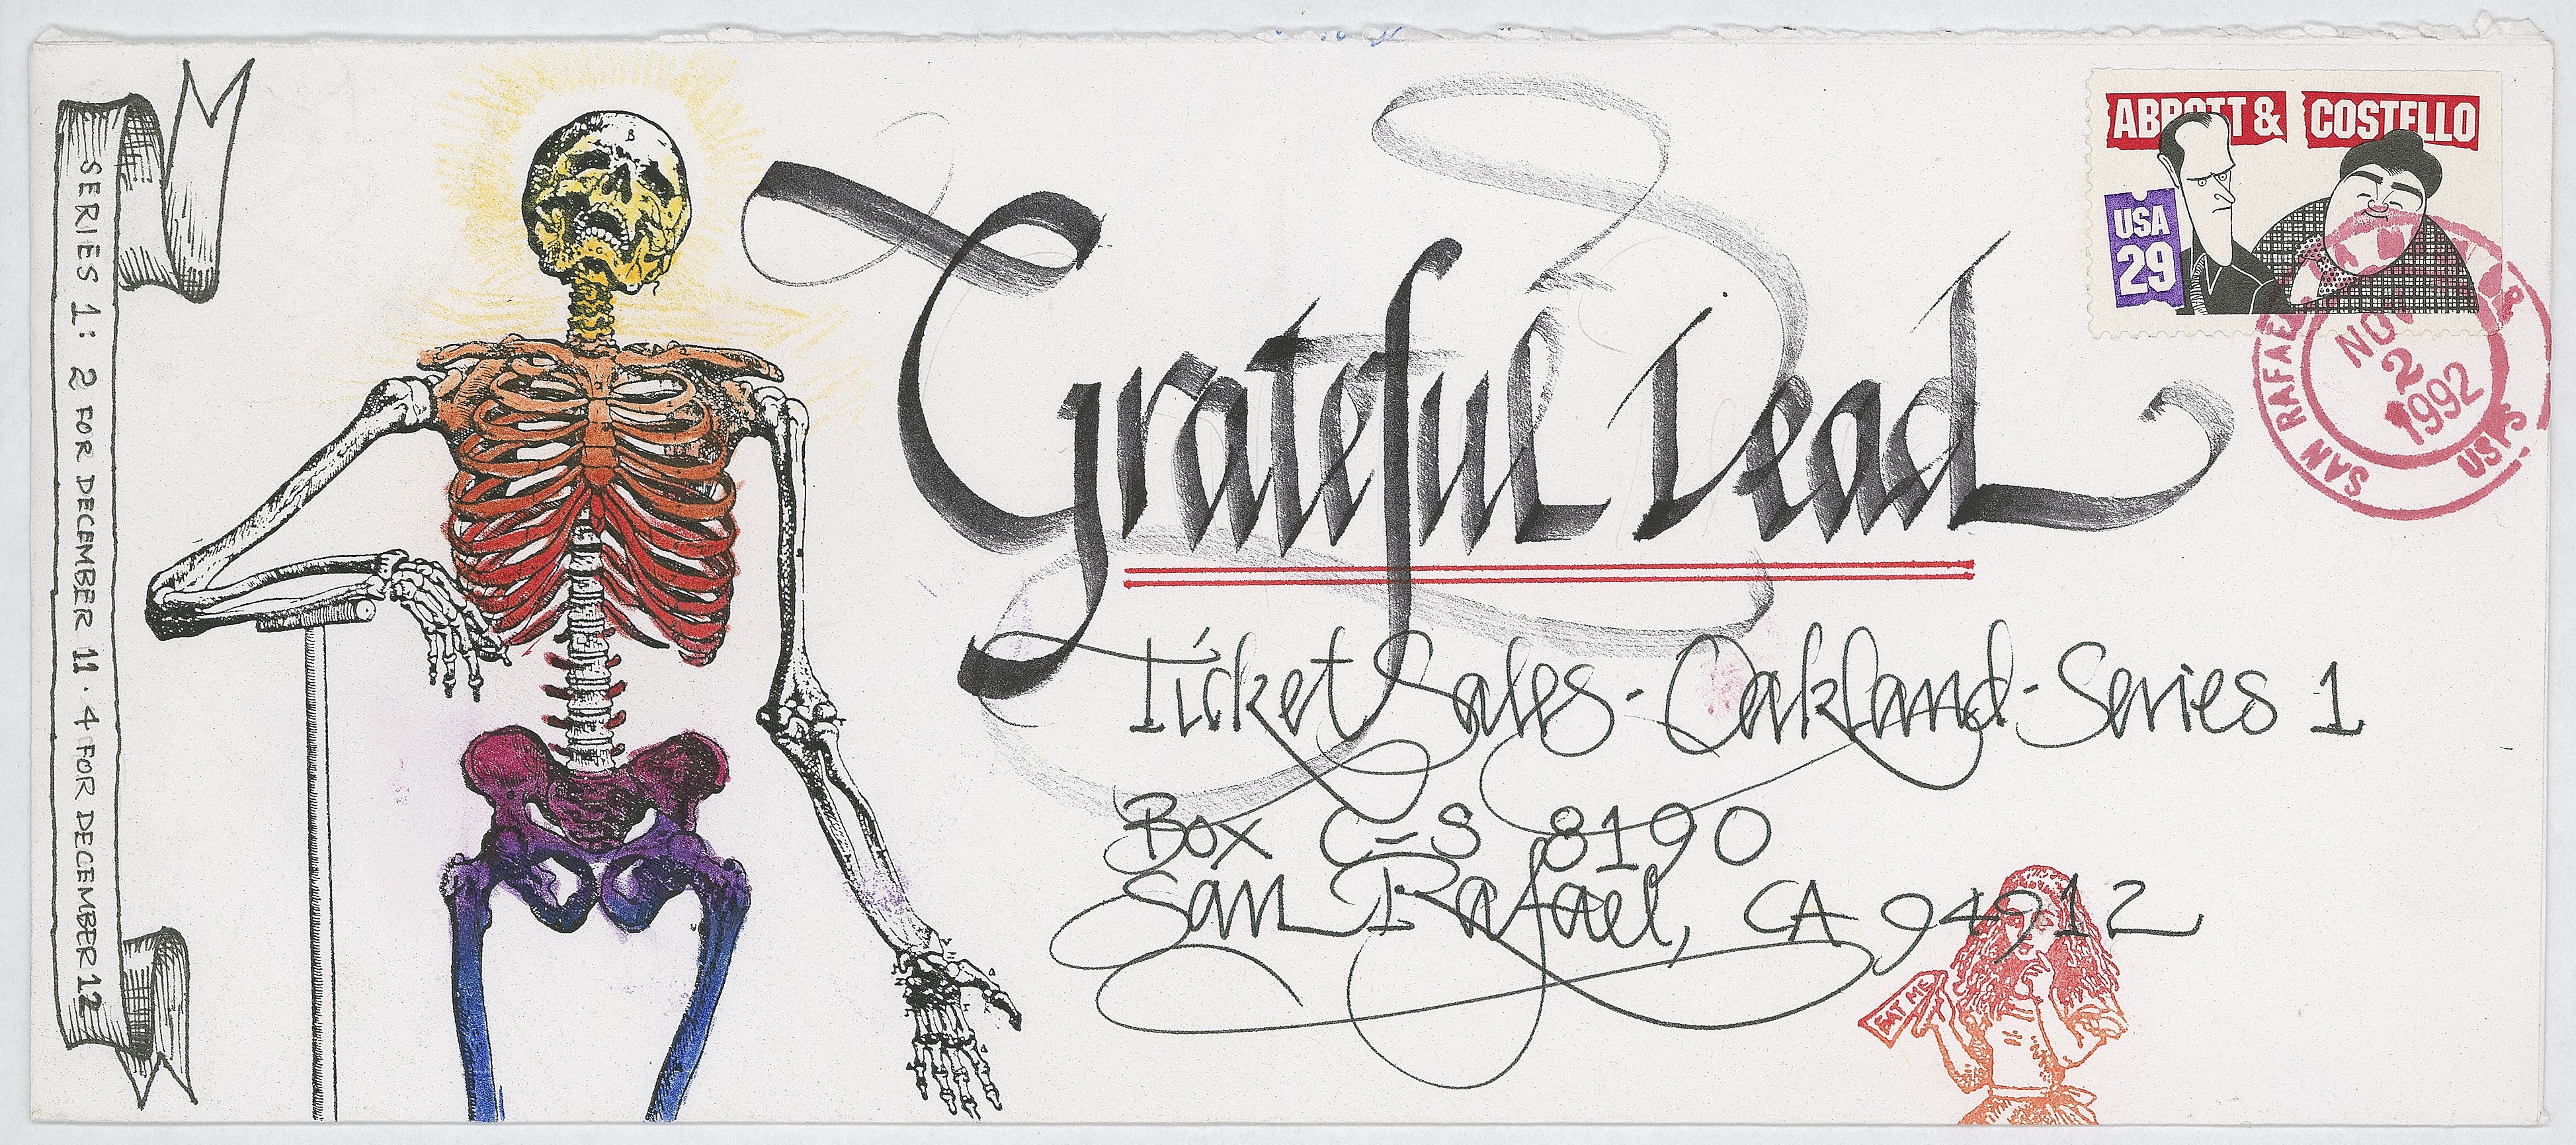 SERIES 1: 2 FOR DECEMBER 11 · 4 FOR DECEMBER 12
Grateful Dead
Ticket Sales - Oakland - Series 1
Box C-S 8190
San Rafael, CA 94912
ABBOTT & COSTELLO
USA
29
SAN RAFAEL
NOV
2
1992
USPS
EAT ME